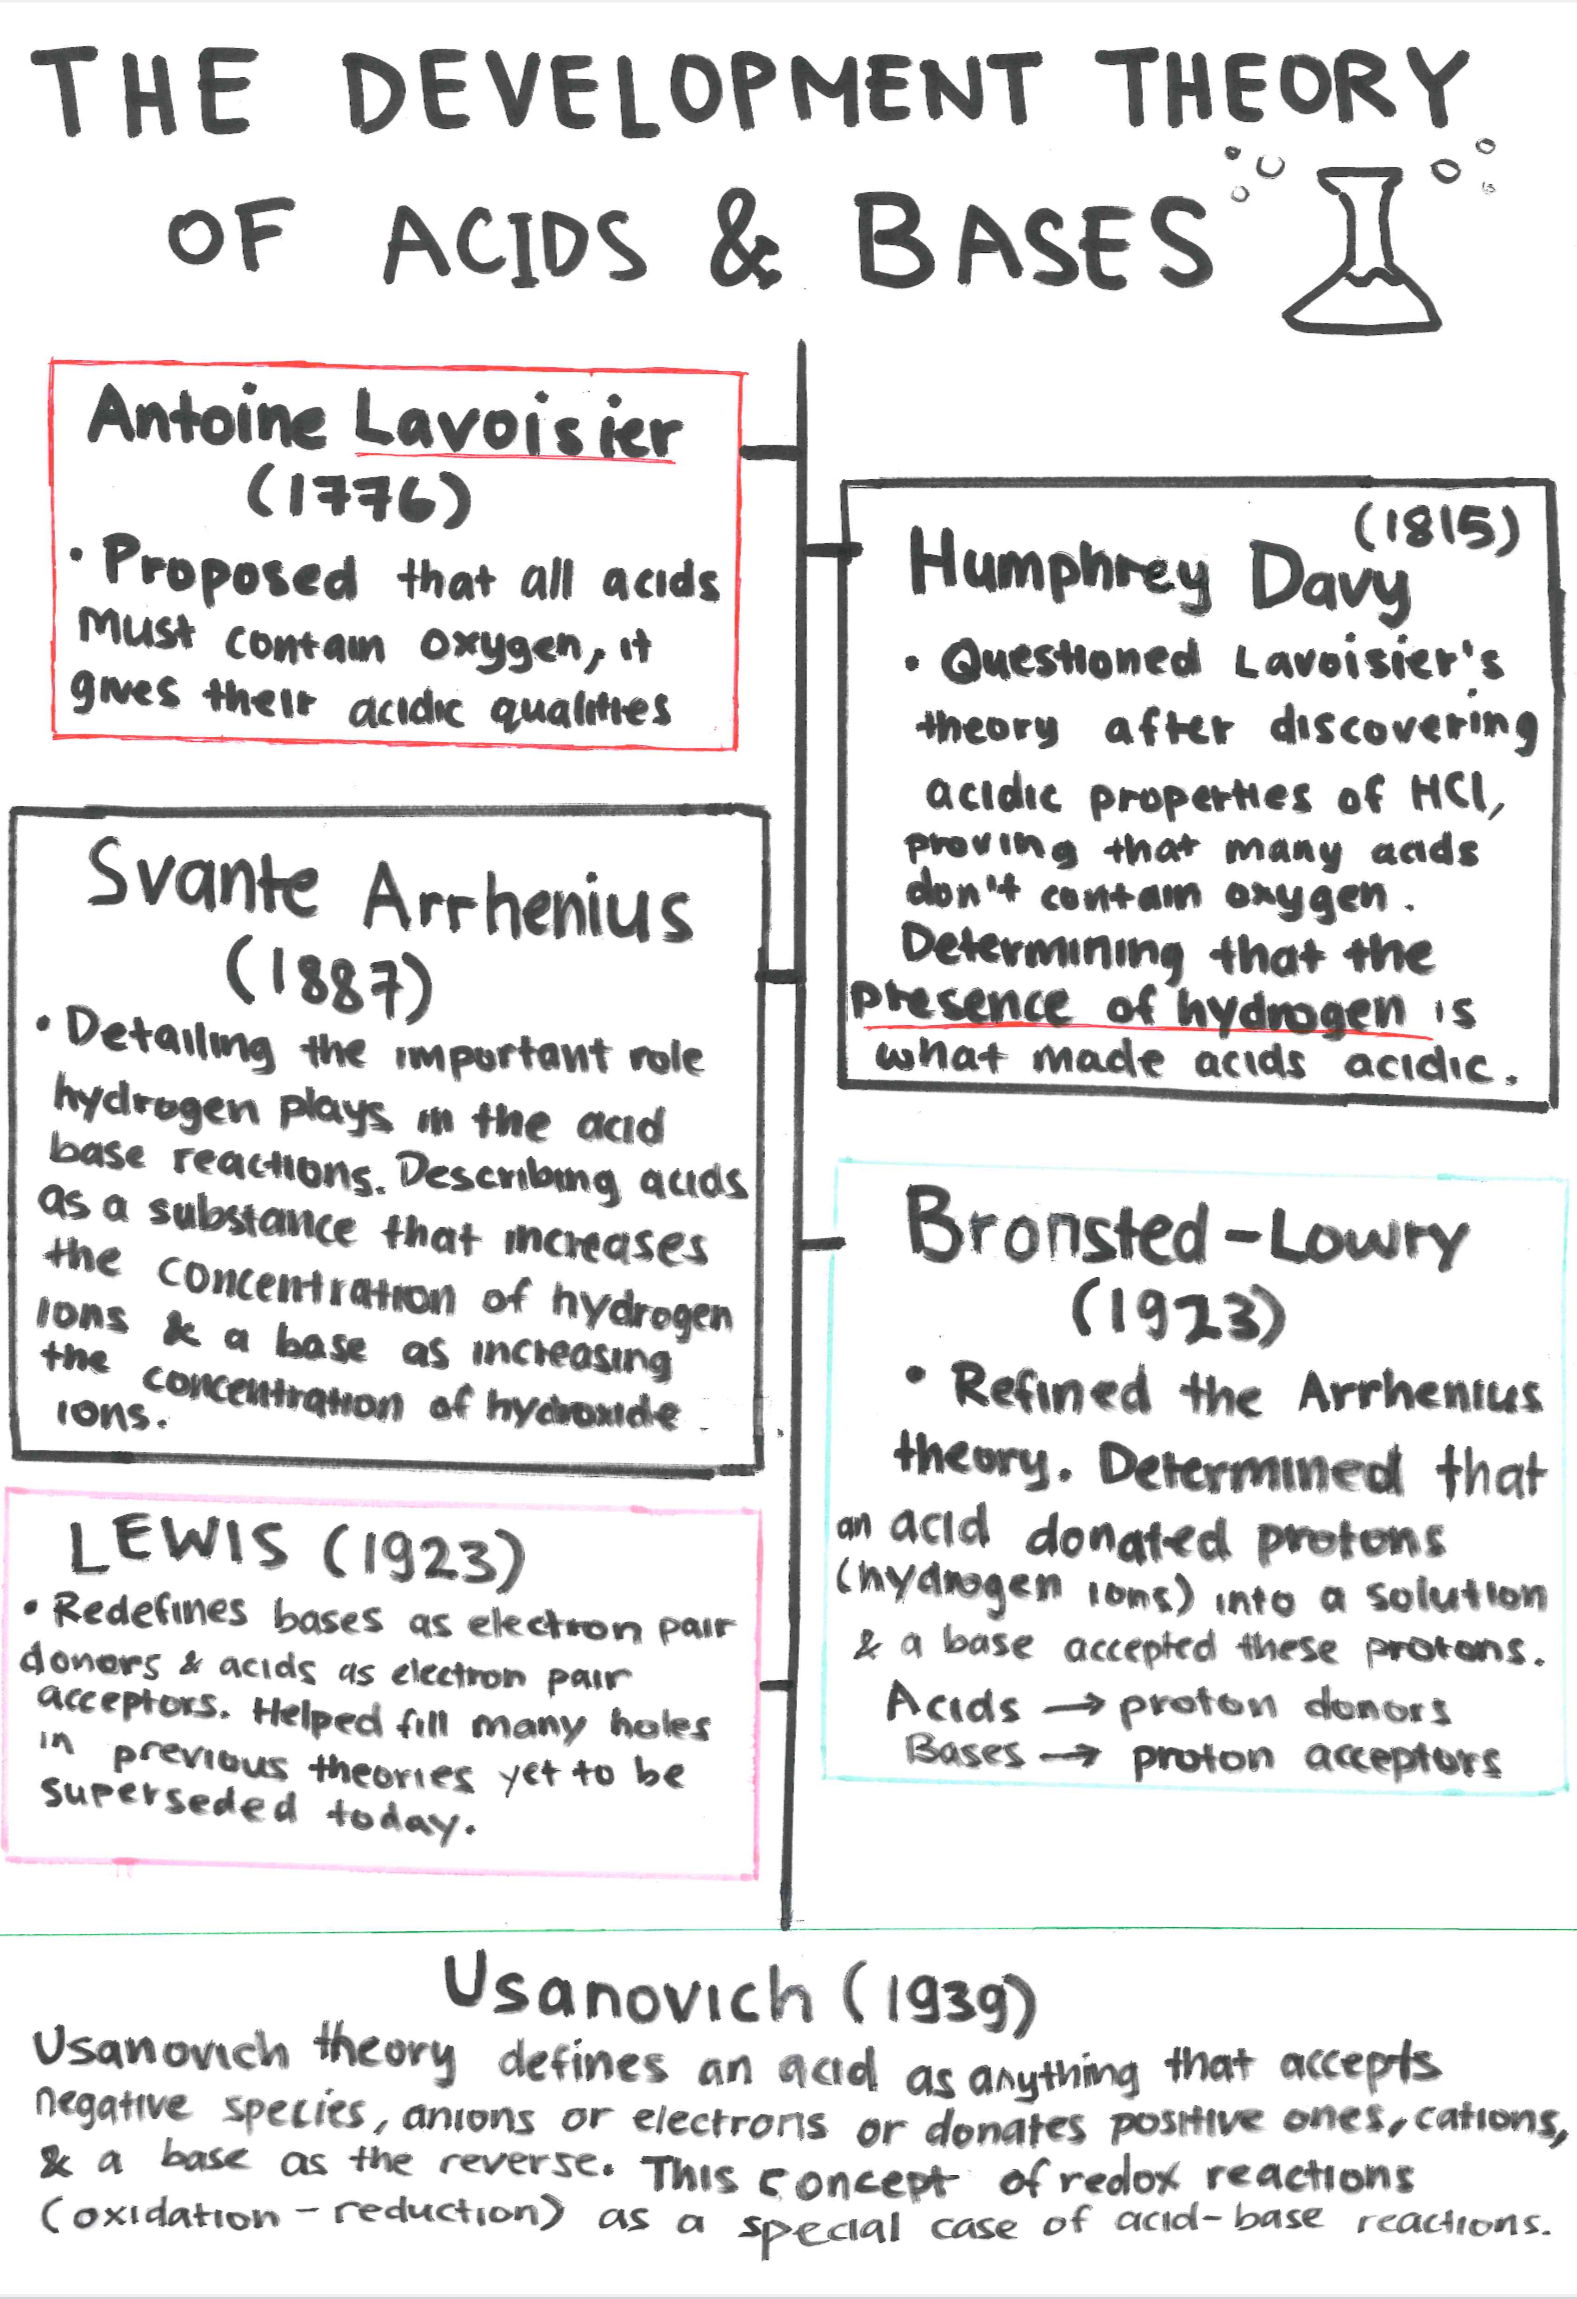 THE DEVELOPMENT THEORY
OF ACIDS & BASES
Antoine Lavoisier
(1776)
• Proposed that all acids
Must contain oxygen, it
gives their acidic qualities
(1815)
Humphrey Davy
• Questioned Lavoisier's
theory after discovering
acidic properties of HCl,
proving that many acids
don't contain oxygen.
Determining that the
presence of hydrogen is
what made acids acidic.
Svante Arrhenius
(1887)
• Detailing the important role
hydrogen plays in the acid
base reactions. Describing acids
as a substance that increases
the concentration of hydrogen
ions & a base as increasing
the concentration of hydroxide
ions.
Bronsted-Lowry
(1923)
• Refined the Arrhenius
theory. Determined that
an acid donated protons
(hydrogen ions) into a solution
& a base accepted these protons.
Acids → proton donors
Bases → proton acceptors
LEWIS (1923)
• Redefines bases as electron pair
donors & acids as electron pair
acceptors. Helped fill many holes
in previous theories yet to be
superseded today.
Usanovich (1939)
Usanovich theory defines an acid as anything that accepts
negative species, anions or electrons or donates positive ones, cations,
& a base as the reverse. This concept of redox reactions
(oxidation-reduction) as a special case of acid-base reactions.